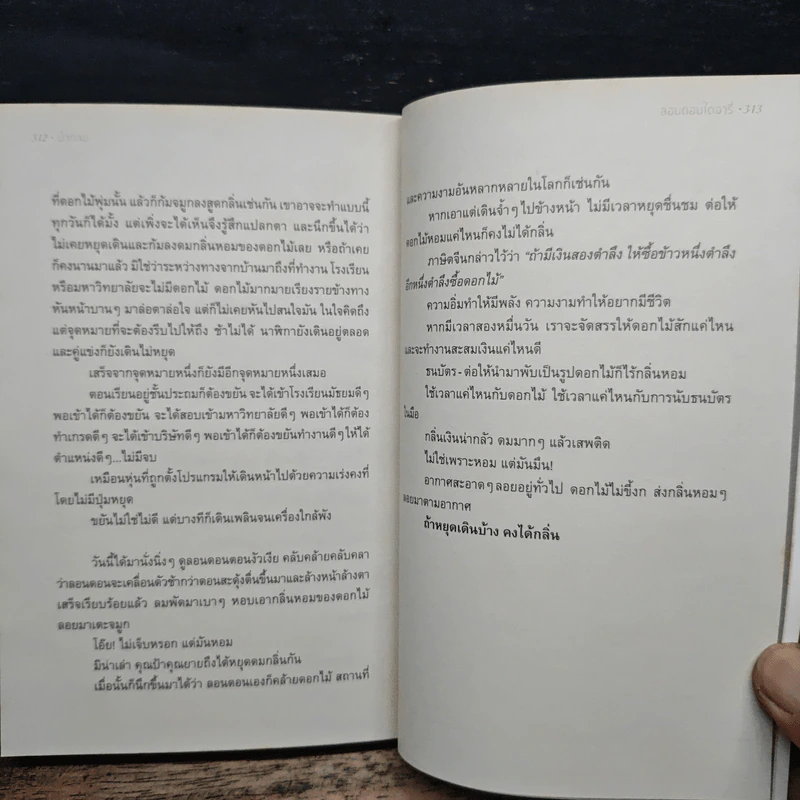 312 •
ที่ดอกไม้พุ่มนั้น แล้วก็ก้มจมูกลงสูดกลิ่นเช่นกัน เขาอาจจะทำแบบนี้
ทุกวันก็ได้มั้ง แต่เพิ่งจะได้เห็นจึงรู้สึกแปลกตา และนึกขึ้นได้ว่า
ไม่เคยหยุดเดินและก้มลงดมกลิ่นหอมของดอกไม้เลย หรือถ้าเคย
ก็คงนานมาแล้ว มิใช่ว่าระหว่างทางจากบ้านมาถึงที่ทำงาน โรงเรียน
หรือมหาวิทยาลัยจะไม่มีดอกไม้ ดอกไม้มากมายเรียงรายข้างทาง
หันหน้าบานๆ มาล่อตาล่อใจ แต่ก็ไม่เคยหันไปสนใจมัน ในใจคิดถึง
แต่จุดหมายที่จะต้องรีบไปให้ถึง ช้าไม่ได้ นาฬิกายังเดินอยู่ตลอด
และคู่แข่งก็ยังเดินไม่หยุด
เสร็จจากจุดหมายหนึ่งก็ยังมีอีกจุดหมายหนึ่งเสมอ
ตอนเรียนอยู่ชั้นประถมก็ต้องขยัน จะได้เข้าโรงเรียนมัธยมดีๆ
พอเข้าได้ก็ต้องขยัน จะได้สอบเข้ามหาวิทยาลัยดีๆ พอเข้าได้ก็ต้อง
ทำเกรดดีๆ จะได้เข้าบริษัทดีๆ พอเข้าได้ก็ต้องขยันทำงานดีๆ ให้ได้
ตำแหน่งดีๆ...ไม่มีจบ
เหมือนหุ่นที่ถูกตั้งโปรแกรมให้เดินหน้าไปด้วยความเร่งคงที่
โดยไม่มีปุ่มหยุด
ขยันไม่ใช่ไม่ดี แต่บางทีก็เดินเพลินจนเครื่องใกล้พัง
วันนี้ได้มานั่งนิ่งๆ ดูลอนดอนตอนงัวเงีย คลับคล้ายคลับคลา
ว่าลอนดอนจะเคลื่อนตัวช้ากว่าตอนสะดุ้งตื่นขึ้นมาและล้างหน้าล้างตา
เสร็จเรียบร้อยแล้ว ลมพัดมาเบาๆ หอบเอากลิ่นหอมของดอกไม้
ลอยมาเตะจมูก
โอ๊ย! ไม่เจ็บหรอก แต่มันหอม
มิน่าเล่า คุณป้าคุณยายถึงได้หยุดดมกลิ่นกัน
เมื่อนั้นก็นึกขึ้นมาได้ว่า ลอนดอนเองก็คล้ายดอกไม้ สถานที่
ลอนดอนไดอารี่ • 313
และความงามอันหลากหลายในโลกก็เช่นกัน
หากเอาแต่เดินจ้ำๆ ไปข้างหน้า ไม่มีเวลาหยุดชื่นชม ต่อให้
ดอกไม้หอมแค่ไหนก็คงไม่ได้กลิ่น
ภาษิตจีนกล่าวไว้ว่า "ถ้ามีเงินสองตำลึง ให้ซื้อข้าวหนึ่งตำลึง
อีกหนึ่งตำลึงซื้อดอกไม้"
ความอิ่มทำให้มีพลัง ความงามทำให้อยากมีชีวิต
หากมีเวลาสองหมื่นวัน เราจะจัดสรรให้ดอกไม้สักแค่ไหน
และจะทำงานสะสมเงินแค่ไหนดี
ธนบัตร-ต่อให้นำมาพับเป็นรูปดอกไม้ก็ไร้กลิ่นหอม
ใช้เวลาแค่ไหนกับดอกไม้ ใช้เวลาแค่ไหนกับการนับธนบัตร
ในมือ
กลิ่นเงินน่ากลัว ดมมากๆ แล้วเสพติด
ไม่ใช่เพราะหอม แต่มันมึน!
อากาศสะอาดๆ ลอยอยู่ทั่วไป ดอกไม้ไม่ขี้งก ส่งกลิ่นหอมๆ
ลอยมาตามอากาศ
ถ้าหยุดเดินบ้าง คงได้กลิ่น